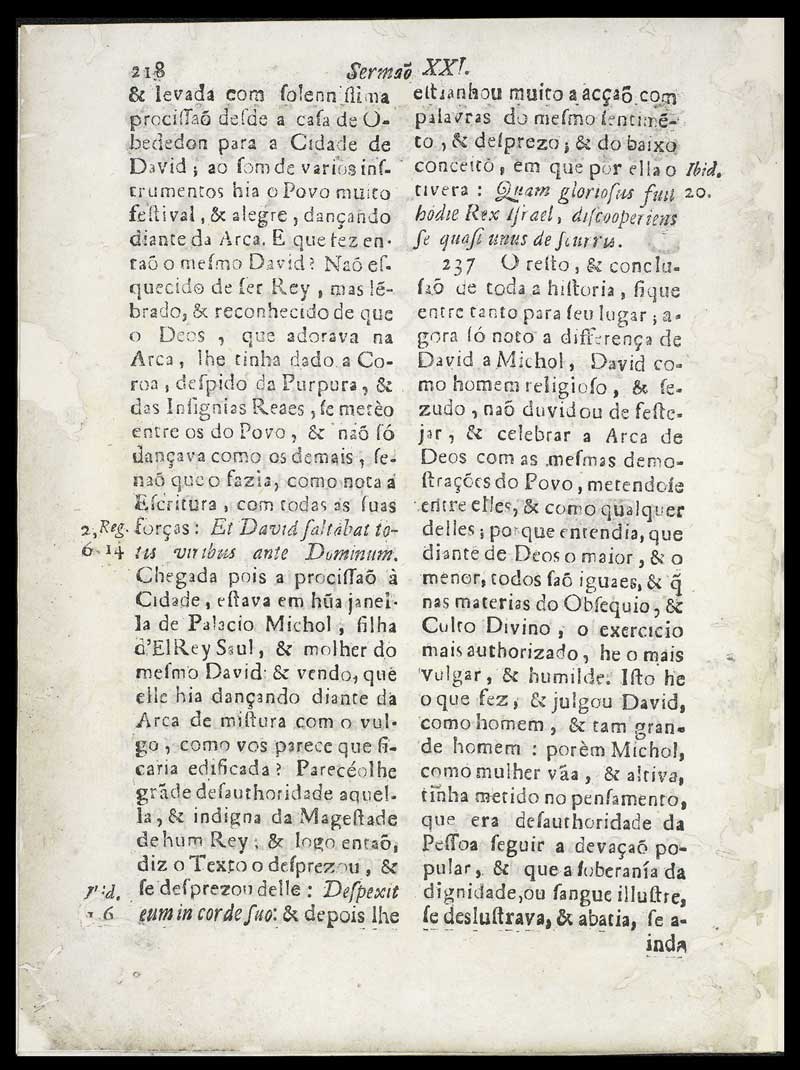 218 Sermaõ XXI.
& levada com ſolenniſſima
prociſſaõ deſde a caſa de O-
bededon para a Cidade de
David; ao ſom de varios inſ-
trumentos hia o Povo muito
feſtival, & alegre, dançando
diante da Arca. E que fez en-
taõ o meſmo David? Naõ eſ-
quecido de ſer Rey, mas lẽ-
brado, & reconhecido de que
o Deos, que adorava na
Arca, lhe tinha dado a Co-
roa, deſpido da Purpura, &
das Inſignias Reaes, ſe metèo
entre os do Povo, & naõ ſó
dançava como os demais, ſe-
naõ que o fazia, como nota a
Eſcritura, com todas as ſuas
2. Reg. forças: Et David ſaltabat to-
6. 14 tis viribus ante Dominum.
Chegada pois a prociſſaõ à
Cidade, eſtava em hũa janel-
la de Palacio Michol, filha
d'ElRey Saul, & molher do
meſmo David: & vendo, que
elle hia dançando diante da
Arca de miſtura com o vul-
go, como vos parece que fi-
caria edificada? Parecéolhe
grãde deſauthoridade aquel-
la, & indigna da Mageſtade
de hum Rey; & logo entaõ,
diz o Texto o deſprezou, &
ſe deſprezou delle: Deſpexit
eum in corde ſuo: & depois lhe
eſtranhou muito a acçaõ com
palavras do meſmo ſentimẽ-
to, & deſprezo; & do baixo
conceito, em que por ella o Ibid.
tivera: Quam glorioſus fuit 20.
hodie Rex Iſrael, diſcooperiens
ſe quaſi unus de ſcurris.
237 O reſto, & conclu-
ſaõ de toda a hiſtoria, fique
entre tanto para ſeu lugar; a-
gora ſó noto a differença de
David a Michol, David co-
mo homem religioſo, & ſe-
zudo, naõ duvidou de feſte-
jar, & celebrar a Arca de
Deos com as meſmas demo-
ſtrações do Povo, metendoſe
entre elles, & como qualquer
delles; porque entendia, que
diante de Deos o maior, & o
menor, todos ſaõ iguaes, & q̃
nas materias do Obſequio, &
Culto Divino, o exercicio
mais authorizado, he o mais
vulgar, & humilde. Iſto he
o que fez, & julgou David,
como homem, & tam gran-
de homem: porèm Michol,
como mulher vãa, & altiva,
tinha metido no penſamento,
que era deſauthoridade da
Peſſoa ſeguir a devaçaõ po-
pular, & que a ſoberanía da
dignidade, ou ſangue illuſtre,
ſe desluſtrava, & abatia, ſe a-
inda